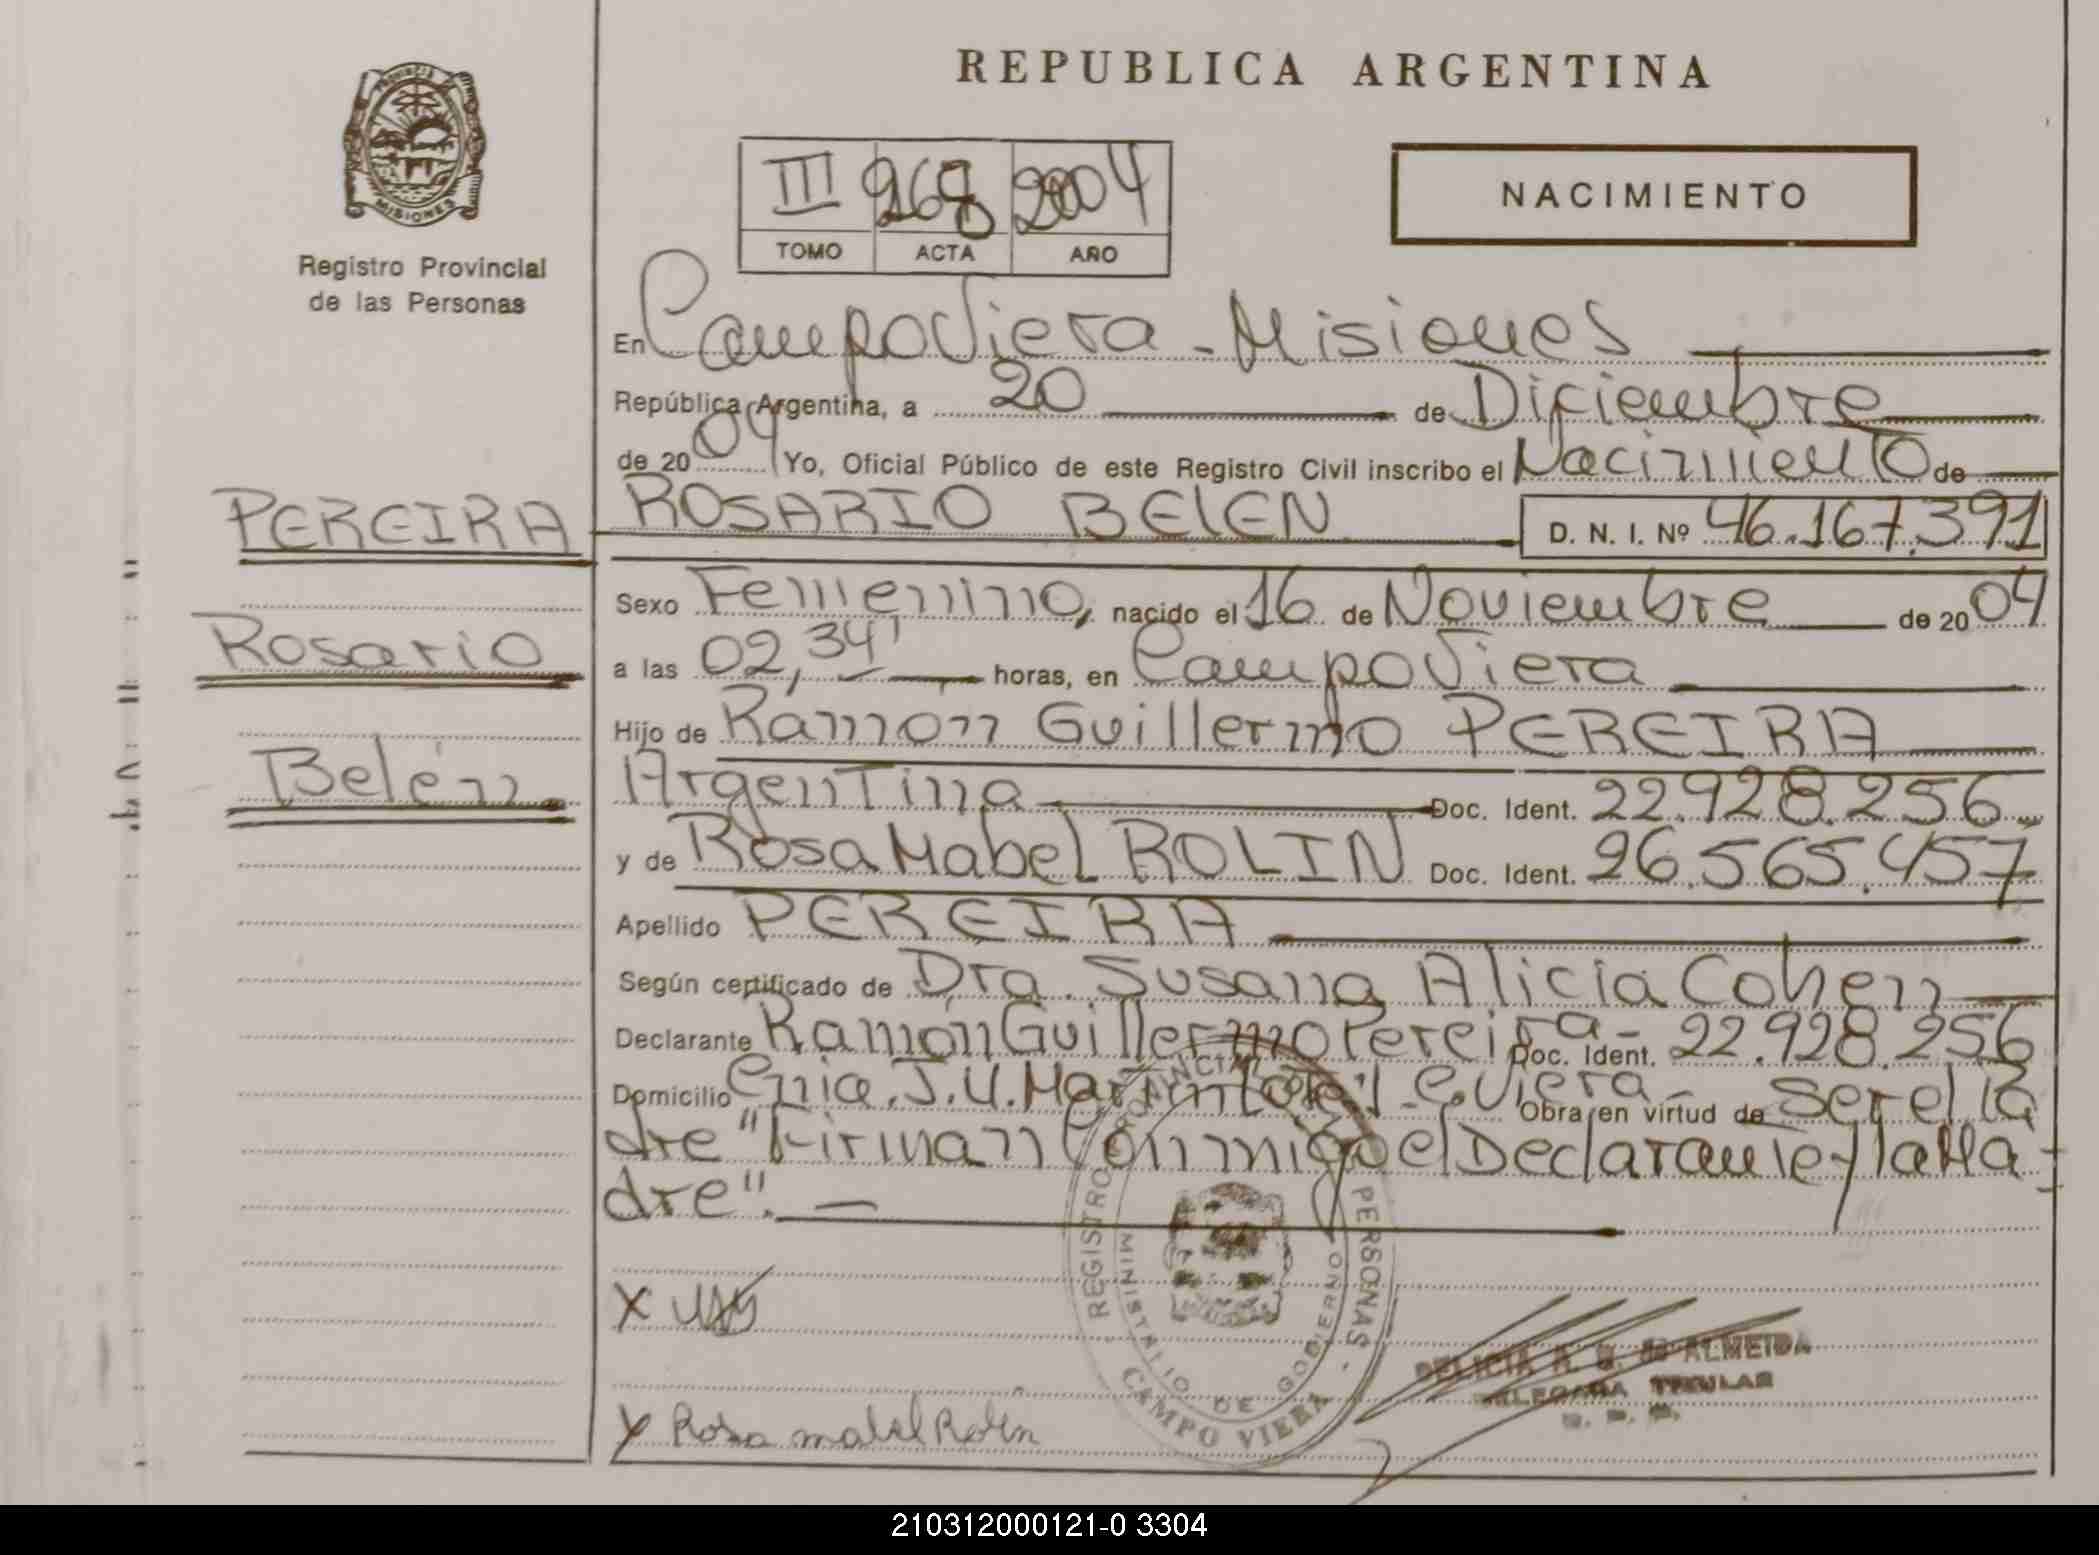 REPUBLICA ARGENTINA
PROVINCIA
MISIONES
Registro Provincial
de las Personas
III 268 2004
TOMO ACTA AÑO
NACIMIENTO
En Campo Viera - Misiones
República Argentina, a 20 de Diciembre
de 2004 Yo, Oficial Público de este Registro Civil inscribo el Nacimiento de
PEREIRA ROSARIO BELEN D. N. I. Nº 46.167.391
Sexo Femenino, nacido el 16 de Noviembre de 2004
Rosario
a las 02,34' horas, en Campo Viera
Hijo de Ramon Guillermo PEREIRA
Belén
Argentina Doc. Ident. 22.928.256
y de Rosa Mabel ROLIN Doc. Ident. 26.565.457
Apellido PEREIRA
Según certificado de Dra. Susana Alicia Cohen
Declarante Ramón Guillermo Pereira - Doc. Ident. 22.928.256
Domicilio J. U. Martin C. Viera - Obra en virtud de ser el Pa
dre "Firman Conmigo el Declarante y la Ma-
dre".
REGISTRO PROVINCIAL PERSONAS
MINISTERIO DE GOBIERNO
CAMPO VIERA
X
X Rosa mabel Rolin
DELICIA ALMEIDA
DELEGADA TITULAR
210312000121-0 3304